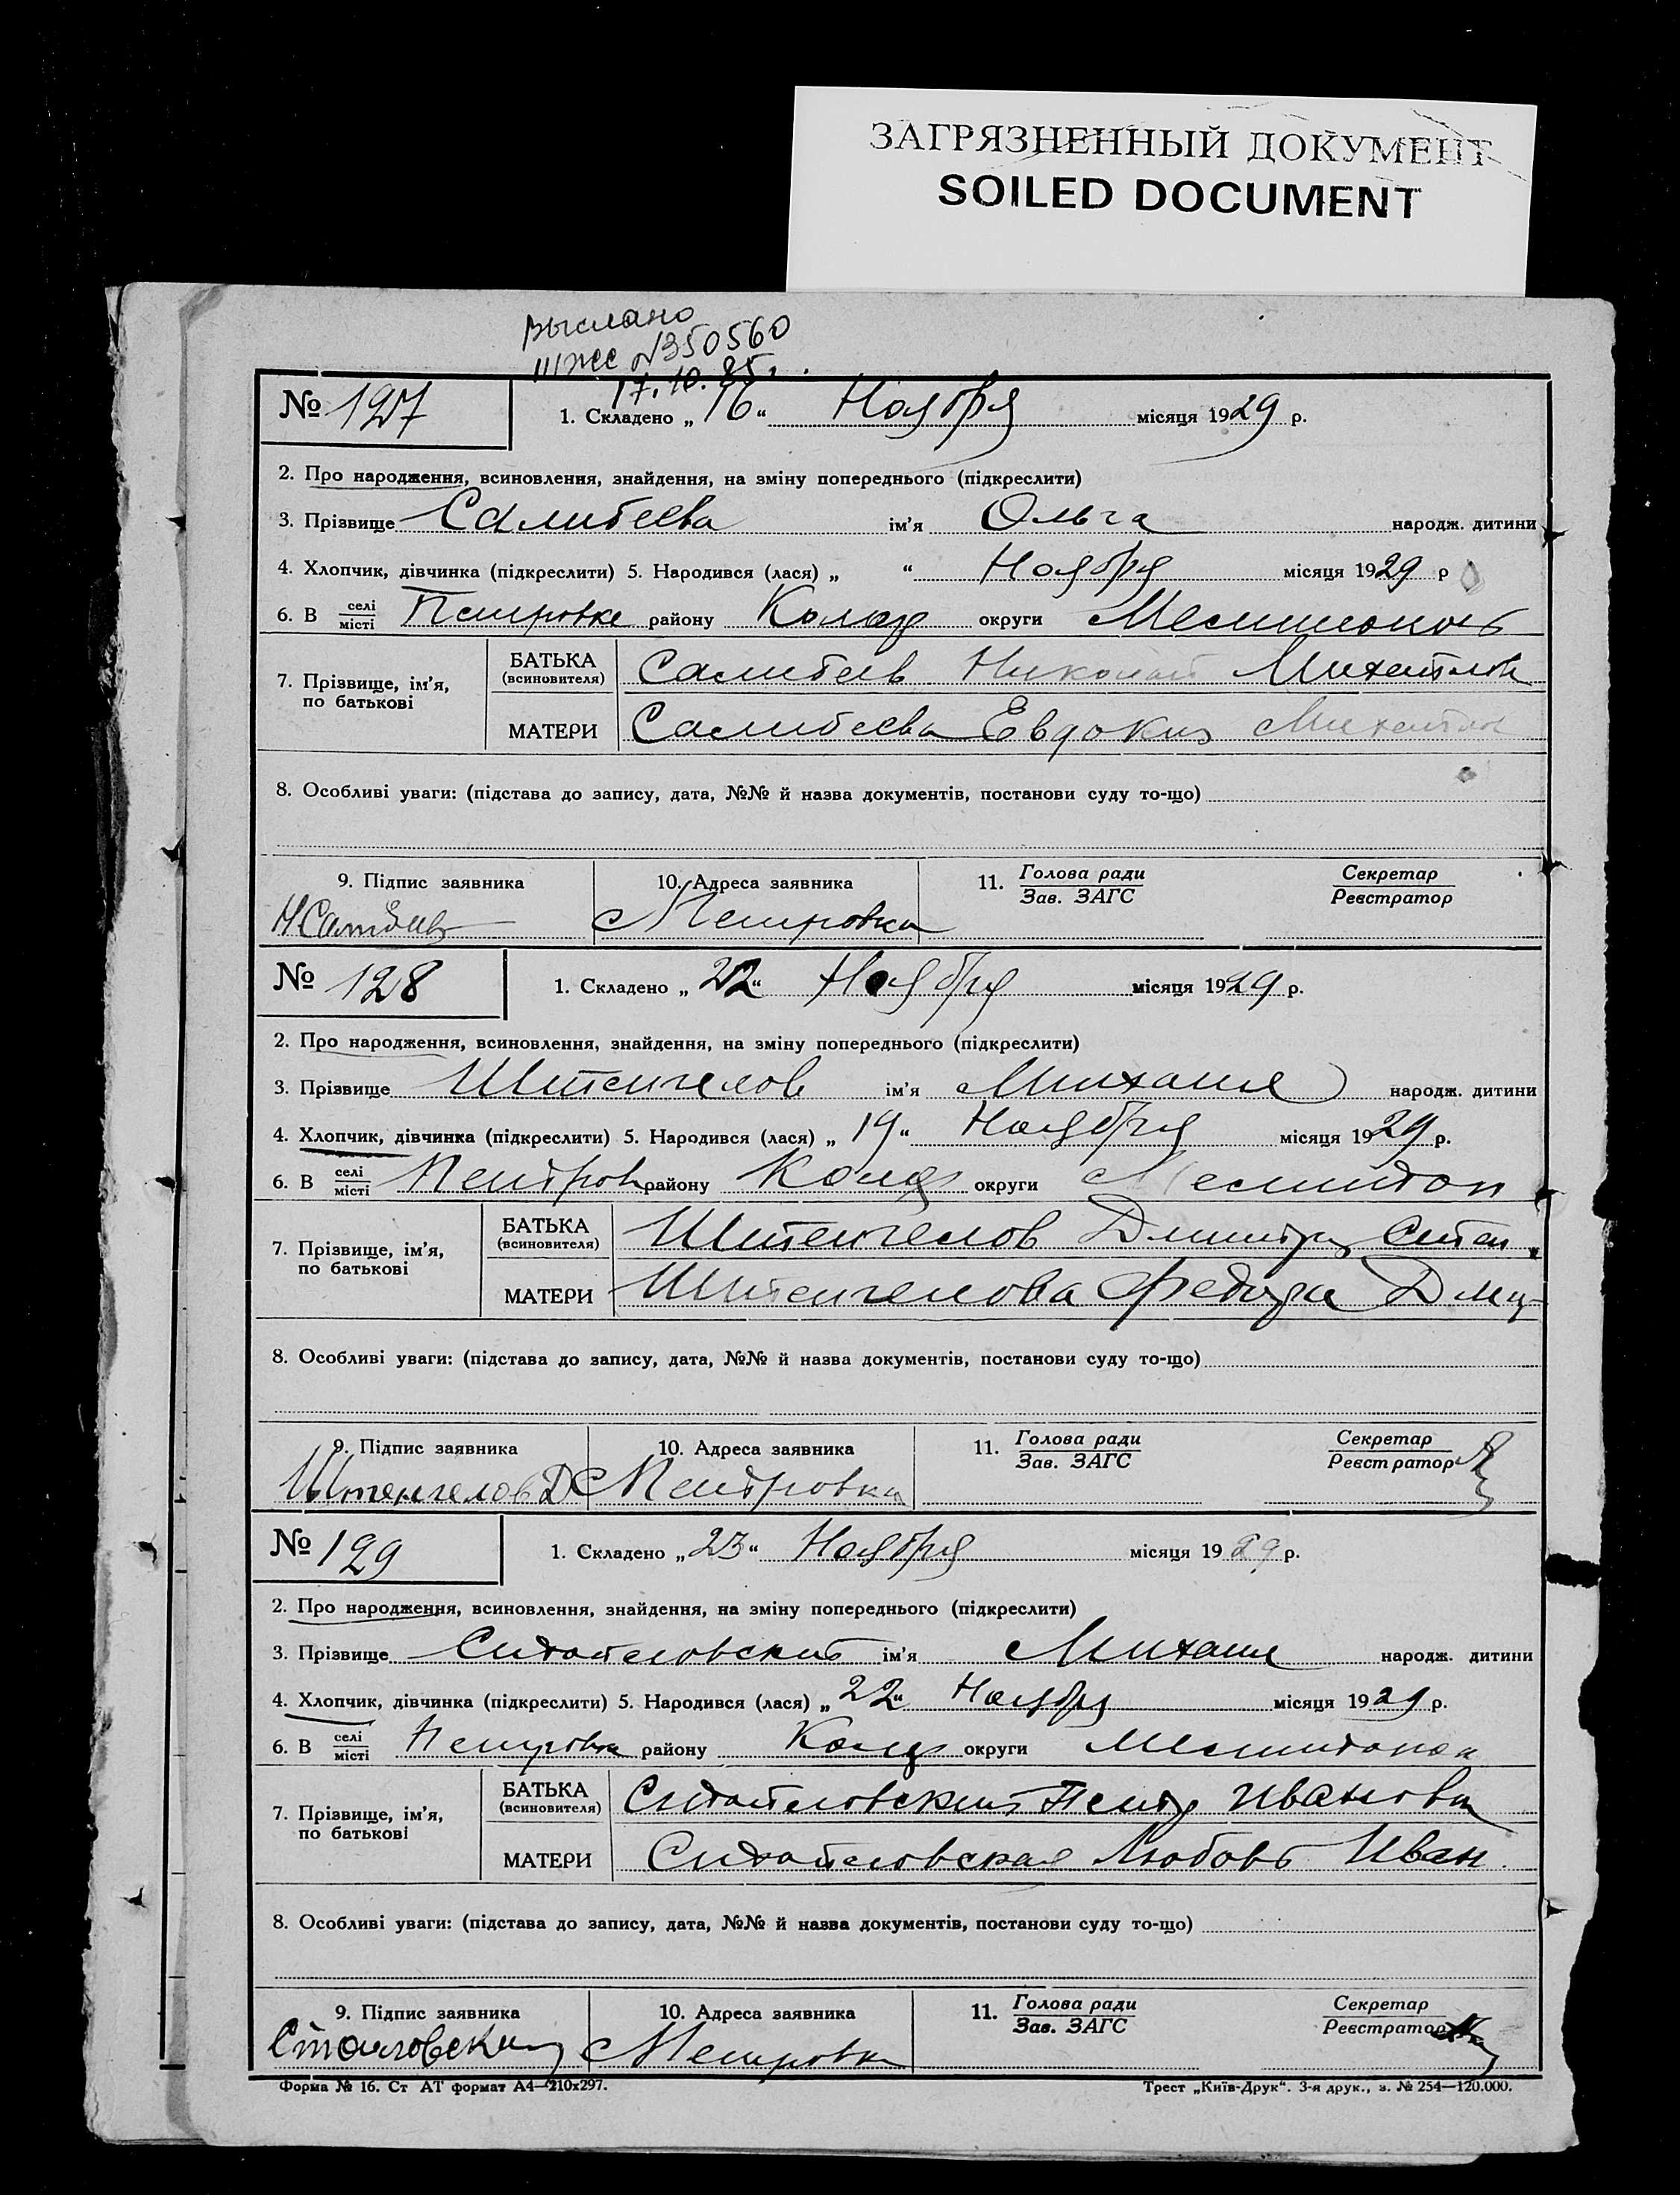 ЗАГРЯЗНЕННЫЙ ДОКУМЕНТ
SOILED DOCUMENT
выслано
III ЖС №350560
17.10.85г.
№ 127 1. Складено „16“ Ноября місяця 1929 р.
2. Про народження, всиновлення, знайдення, на зміну попереднього (підкреслити)
3. Прізвище Салибеева ім’я Ольга народж. дитини
4. Хлопчик, дівчинка (підкреслити) 5. Народився (лася) „ “ Ноября місяця 1929 р
6. В селі/місті Петровке району Колар округи
7. Прізвище, ім’я, по батькові БАТЬКА (всиновителя) Салибеев Николай Михайлов
МАТЕРИ Салибеева Евдокия
8. Особливі уваги: (підстава до запису, дата, №№ й назва документів, постанови суду то-що)
9. Підпис заявника 10. Адреса заявника 11. Голова ради/Зав. ЗАГС Секретар/Реєстратор
Петровка
№ 128 1. Складено „22“ Ноября місяця 1929 р.
2. Про народження, всиновлення, знайдення, на зміну попереднього (підкреслити)
3. Прізвище Штенгелов ім’я Михаил народж. дитини
4. Хлопчик, дівчинка (підкреслити) 5. Народився (лася) „19“ Ноября місяця 1929 р.
6. В селі/місті Петровк району Колар округи Мелитоп
7. Прізвище, ім’я, по батькові БАТЬКА (всиновителя) Штенгелов Дмитрий Степ.
МАТЕРИ Штенгелова Федора Дми-
8. Особливі уваги: (підстава до запису, дата, №№ й назва документів, постанови суду то-що)
9. Підпис заявника 10. Адреса заявника 11. Голова ради/Зав. ЗАГС Секретар/Реєстратор
Штенгелов Д Петровка
№ 129 1. Складено „23“ Ноября місяця 1929 р.
2. Про народження, всиновлення, знайдення, на зміну попереднього (підкреслити)
3. Прізвище ім’я Михаил народж. дитини
4. Хлопчик, дівчинка (підкреслити) 5. Народився (лася) „22“ Ноября місяця 1929 р.
6. В селі/місті Петровка району Колар округи
7. Прізвище, ім’я, по батькові БАТЬКА (всиновителя) Петр Иванови
МАТЕРИ Любовь Иван.
8. Особливі уваги: (підстава до запису, дата, №№ й назва документів, постанови суду то-що)
9. Підпис заявника 10. Адреса заявника 11. Голова ради/Зав. ЗАГС Секретар/Реєстратор
Петровка
Форма № 16. Ст АТ формат А4—210х297. Трест „Київ-Друк“. 3-я друк., з. № 254—120.000.